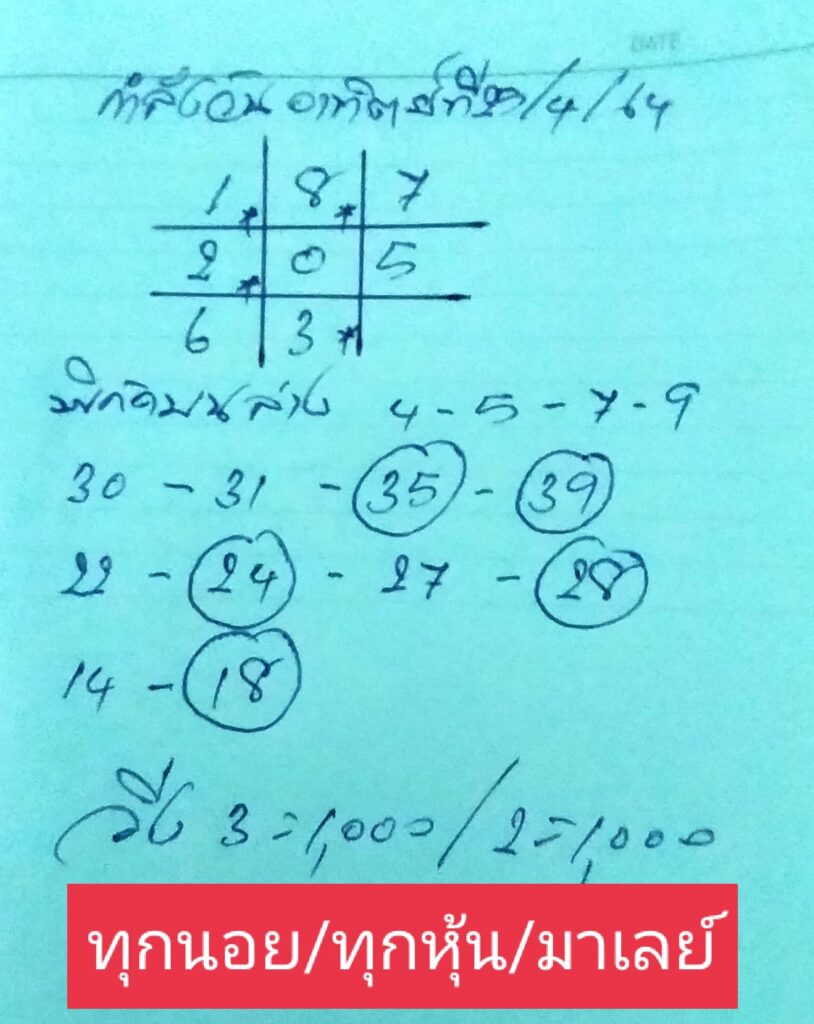 DATE
กำลังวัน อาทิตย์ที่ /4/64
1 * 8 * 7
2 * 0 5
6 3 *
พิกัดบนล่าง 4-5-7-9
30 - 31 - 35 - 39
22 - 24 - 27 - 28
14 - 18
วิ่ง 3=1,000/2=1,000
ทุกนอย/ทุกหุ้น/มาเลย์